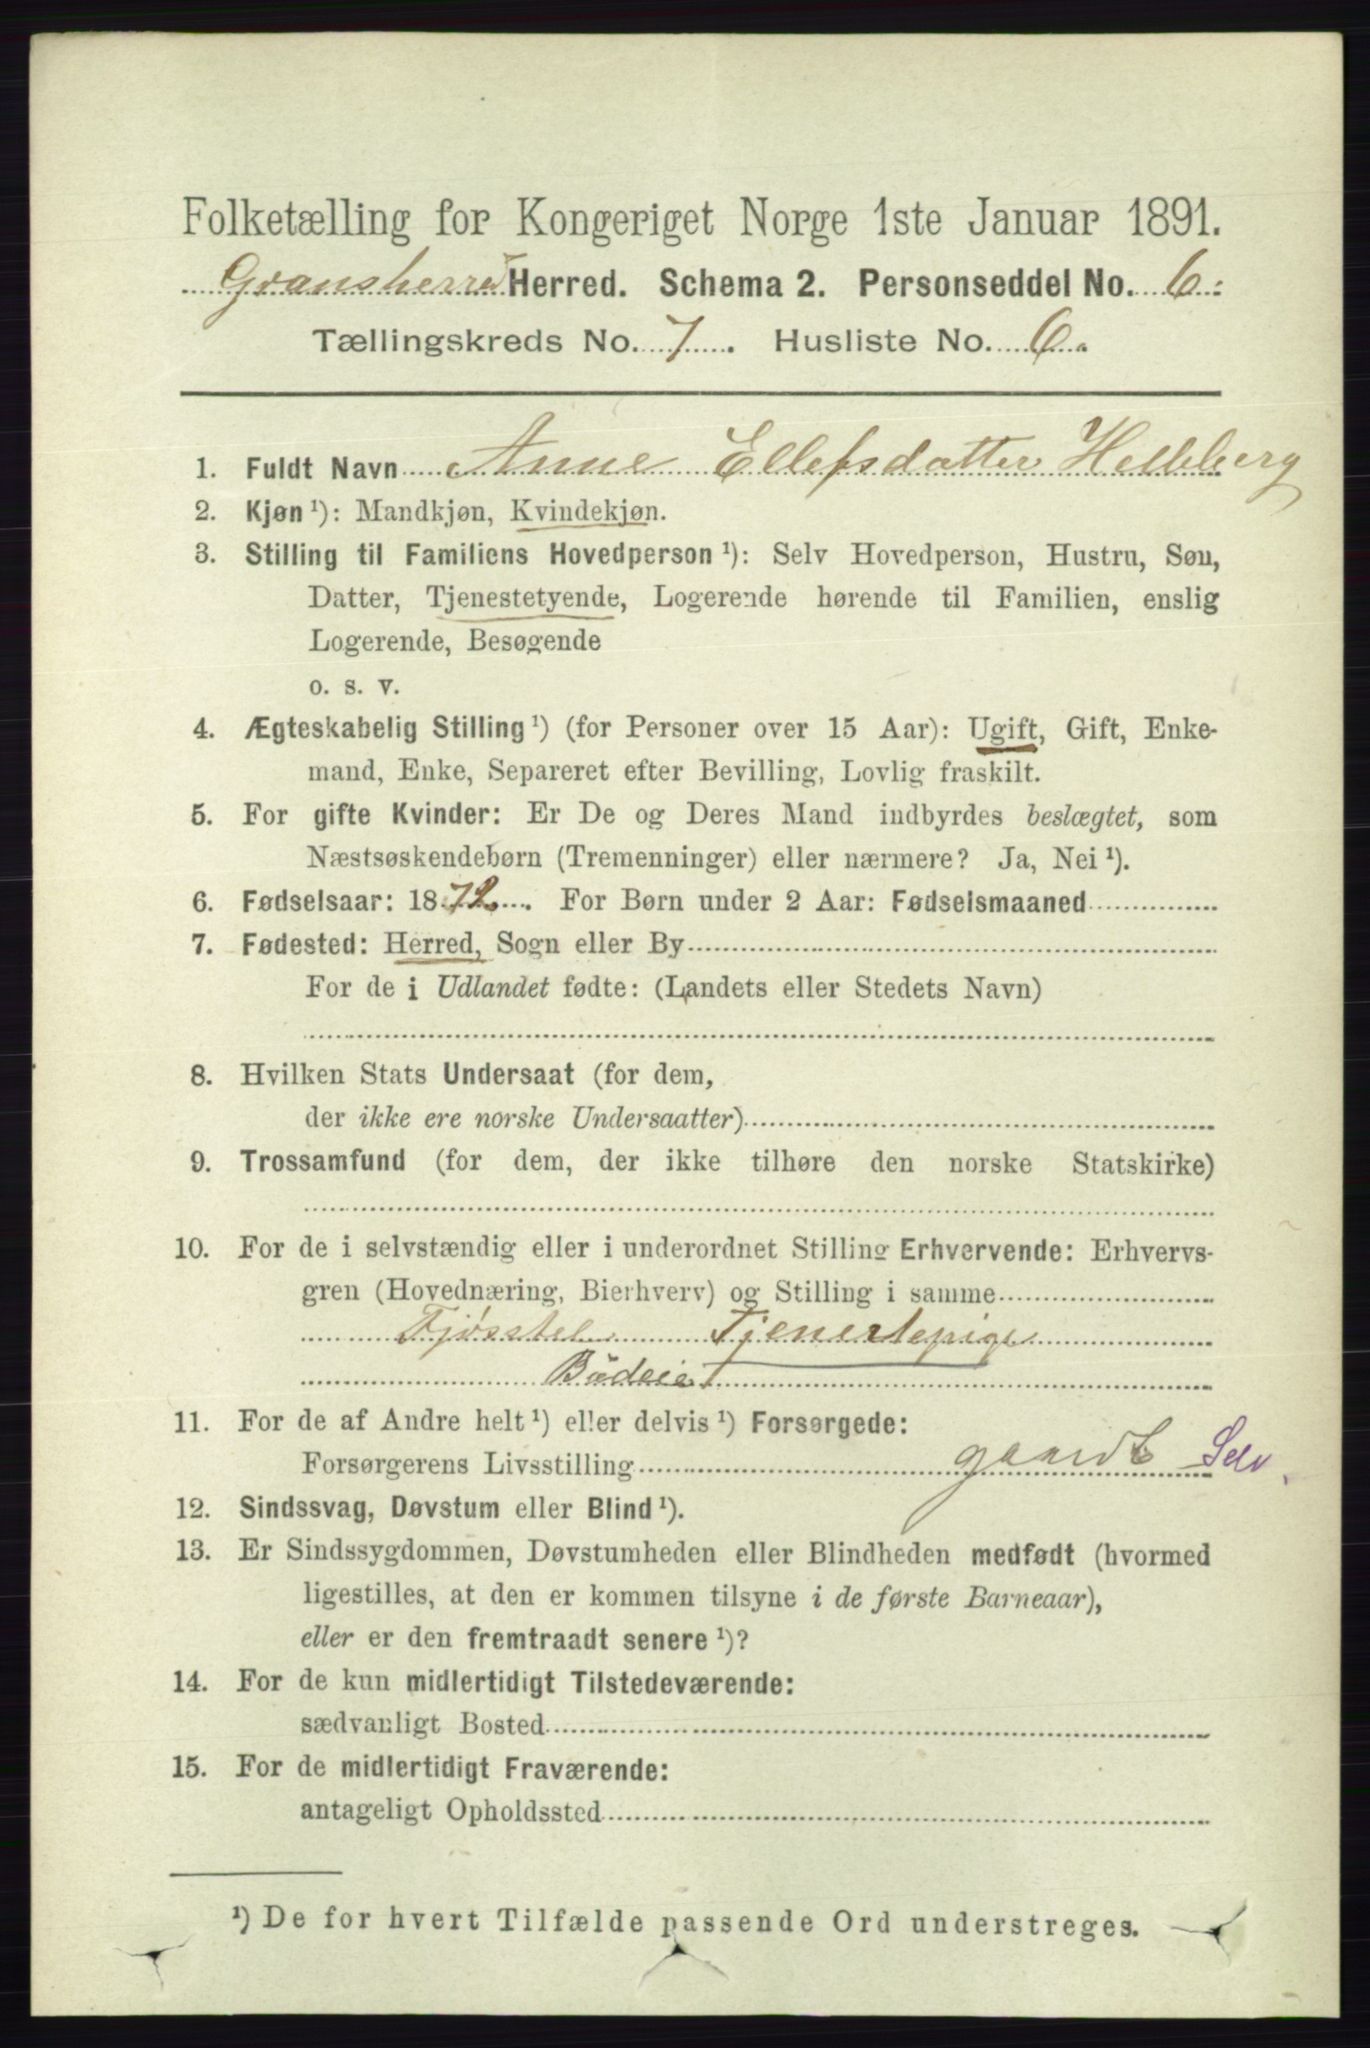 Folketælling for Kongeriget Norge 1ste Januar 1891.
Gransherred Herred. Schema 2. Personseddel No. 6.
Tællingskreds No. 7. Husliste No. 6.
1. Fuldt Navn Anne Ellefsdatter Helleberg
2. Kjøn ¹): Mandkjøn, Kvindekjøn.
3. Stilling til Familiens Hovedperson ¹): Selv Hovedperson, Hustru, Søn,
Datter, Tjenestetyende, Logerende hørende til Familien, enslig
Logerende, Besøgende
o. s. v.
4. Ægteskabelig Stilling ¹) (for Personer over 15 Aar): Ugift, Gift, Enke-
mand, Enke, Separeret efter Bevilling, Lovlig fraskilt.
5. For gifte Kvinder: Er De og Deres Mand indbyrdes beslægtet, som
Næstsøskendebørn (Tremenninger) eller nærmere? Ja, Nei ¹).
6. Fødselsaar: 1872. For Børn under 2 Aar: Fødselsmaaned
7. Fødested: Herred, Sogn eller By
For de i Udlandet fødte: (Landets eller Stedets Navn)
8. Hvilken Stats Undersaat (for dem,
der ikke ere norske Undersaatter)
9. Trossamfund (for dem, der ikke tilhøre den norske Statskirke)
10. For de i selvstændig eller i underordnet Stilling Erhvervende: Erhvervs-
gren (Hovednæring, Bierhverv) og Stilling i samme
Fjøsstel Tjenestepige
Budeie
11. For de af Andre helt ¹) eller delvis ¹) Forsørgede:
Forsørgerens Livsstilling gaardb Selv
12. Sindssvag, Døvstum eller Blind ¹).
13. Er Sindssygdommen, Døvstumheden eller Blindheden medfødt (hvormed
ligestilles, at den er kommen tilsyne i de første Barneaar),
eller er den fremtraadt senere ¹)?
14. For de kun midlertidigt Tilstedeværende:
sædvanligt Bosted
15. For de midlertidigt Fraværende:
antageligt Opholdssted
¹) De for hvert Tilfælde passende Ord understreges.